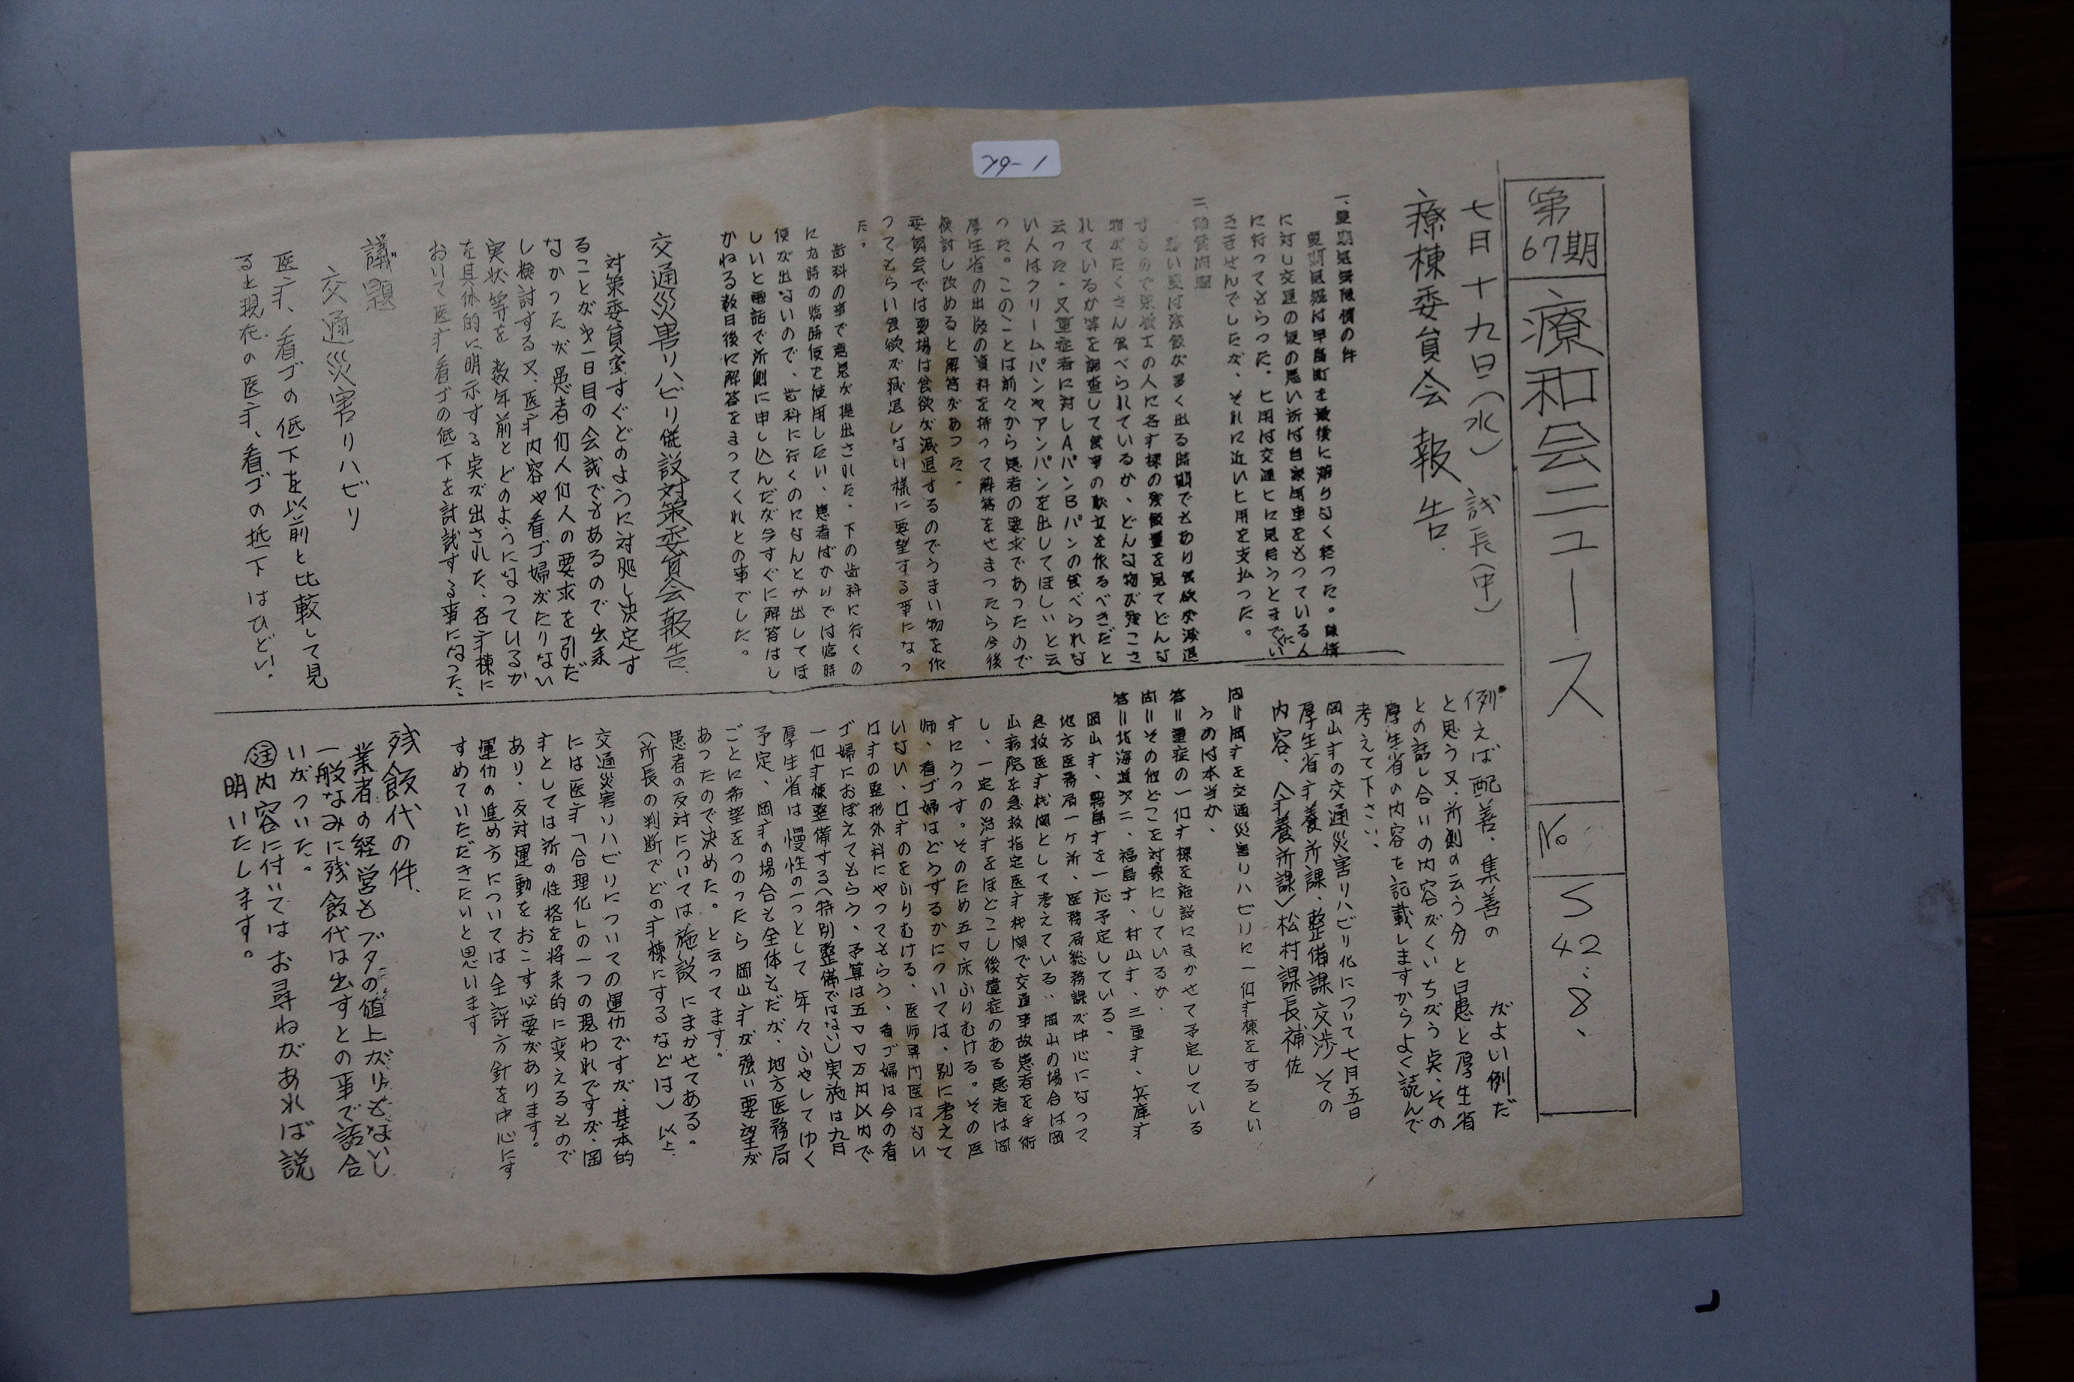 29-1
第67期
療和会ニュース
No
S42.8、
七月十九日(水) 議長(中)
療棟委員会報告.
夏期巡回は早島町を最後に滞りなく終った。陳情
に対し交通の便の悪い所は自家用車をもっている人
に行ってもらった。ヒ用は交通ヒに見合うとまでに
いきませんでしたが、それに近いヒ用を支払った。
暑い夏は残飯が多く出る時期でもあり食欲が減退
するので栄養士の人に各才棟の残飯量を見てどんな
物がたくさん食べられているか、どんな物が残こさ
れているか等を調査して食事の献立を作るべきだと
云った・又重症者に対しAパンBパンの食べられな
い人はクリームパンやアンパンを出してほしいと云
った。このことは前々から患者の要求であったので
厚生省の出版の資料を持って解答をせまったら今後
検討し改めると解答があった。
委員会では夏場は食欲が減退するのでうまい物を作
ってもらい食欲が減退しない様に要望する事になっ
た。
歯科の事で意見が提出された、下の歯科に行くの
に九時の臨時便を使用したい、患者ばかりでは臨時
便が出ないので、歯科に行くのになんとか出してほ
しいと電話で所側に申し込んだが今すぐに解答はし
かねる数日後に解答をまってくれとの事でした。
交通災害リハビリ併設対策委員会報告.
対策委員会ですぐどのように対処し決定す
ることが才一日目の会議でもあるので出来
なかったが患者何人何人の要求を引だ
し検討する又、医才内容や看ゴ婦がたりない
実状等を 数年前とどのようになっているか
を具体的に明示する点が出された、各才棟に
おいて医才看ゴの低下を討議する事になった、
議題
交通災害リハビリ
医才、看ゴの低下を以前と比較して見
ると現在の医才、看ゴの抵下はひどい.
例えば配善、集善の がよい例だ
と思う又、所側の云う分と日患と厚生省
との話し合いの内容がくいちがう点、その
厚生省の内容を記載しますからよく読んで
考えて下さい、
岡山才の交通災害リハビリ化について七月五日
厚生省才養所課、整備課交渉 その
内容、〈才養所課〉松村課長補佐
問=岡才を交通災害リハビリに一ヶ才棟をするとい
うのは本当か、
答=重症の一ヶ才棟を施設にまかせて予定している
問=その他どこを対象にしているか.
答=北海道才二、福島才、村山才、三重才、兵庫才
岡山才、霧島才を一応予定している、
地方医務局一ヶ所、医務局総務課が中心になって
急救医才机関として考えている、岡山の場合は岡
山病院を急救指定医才机関で交通事故患者を手術
し、一定の治才をほどこし後遺症のある患者は岡
才にうつす。そのため五〇床ふりむける。その医
師、看ゴ婦はどうするかについては、別に考えて
いない、口才のをふりむける、医師専門医はない
口才の整形外科にやってもらう、看ゴ婦は今の看
ゴ婦におぼえてもらう、予算は五〇〇万円以内で
一ヶ才棟整備する(特別整備ではない)実施は九月
厚生省は慢性の一つとして 年々ふやしてゆく
予定、岡才の場合も全体をだが、地方医務局
ごとに希望をつのったら 岡山才が強い要望が
あったので決めた。と云ってます。
患者の反対については施設にまかせてある。
(所長の判断でどの才棟にするなどは) 以上
交通災害リハビリについての運仂ですが、基本的
には医才「合理化」の一つの現われですが、国
才としては所の性格を将来的に変えるもので
あり、反対運動をおこす必要があります。
運仂の進め方については全評方針を中心にす
すめていただきたいと思います
残飯代の件.
業者の経営もブタの値上がりもないし
一般なみに残飯代は出すとの事で話合
いがついた。
注内容に付いてはお尋ねがあれば説
明いたします。